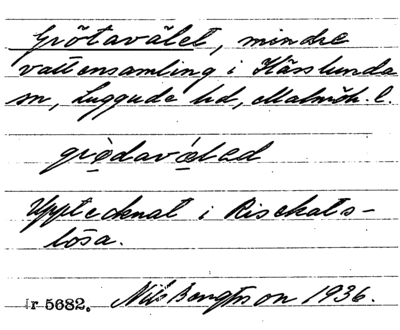 Grötavälet, mindre
vattensamling i Kässlunda
sn, Luggude hd, Malmöh. l.
grödavö́led
Upptecknat i Risekats-
lösa.
Nr 5682. Nils Bengtsson 1936.